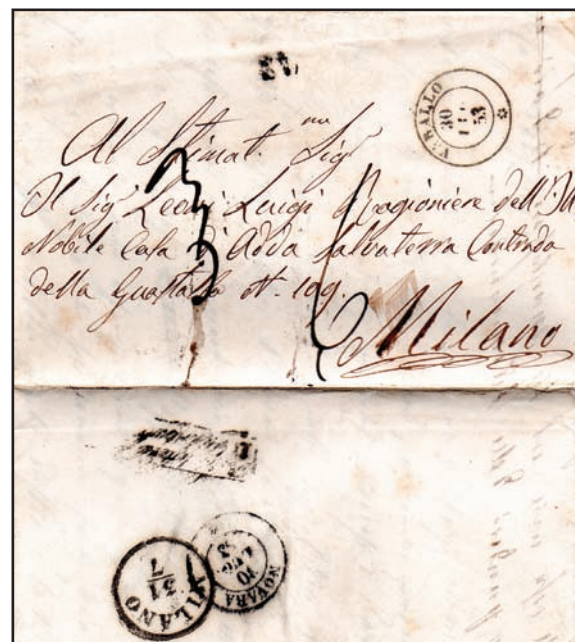 VARALLO
30
53
Al Stimat.mo Sigr
Il Sigr Leoni Luigi Ragioniere dell'
Nobile Casa D'Adda Salvaterra Contrada
della Guastalla N. 109.
Milano
MILANO
31
7
NOVARA
30
53